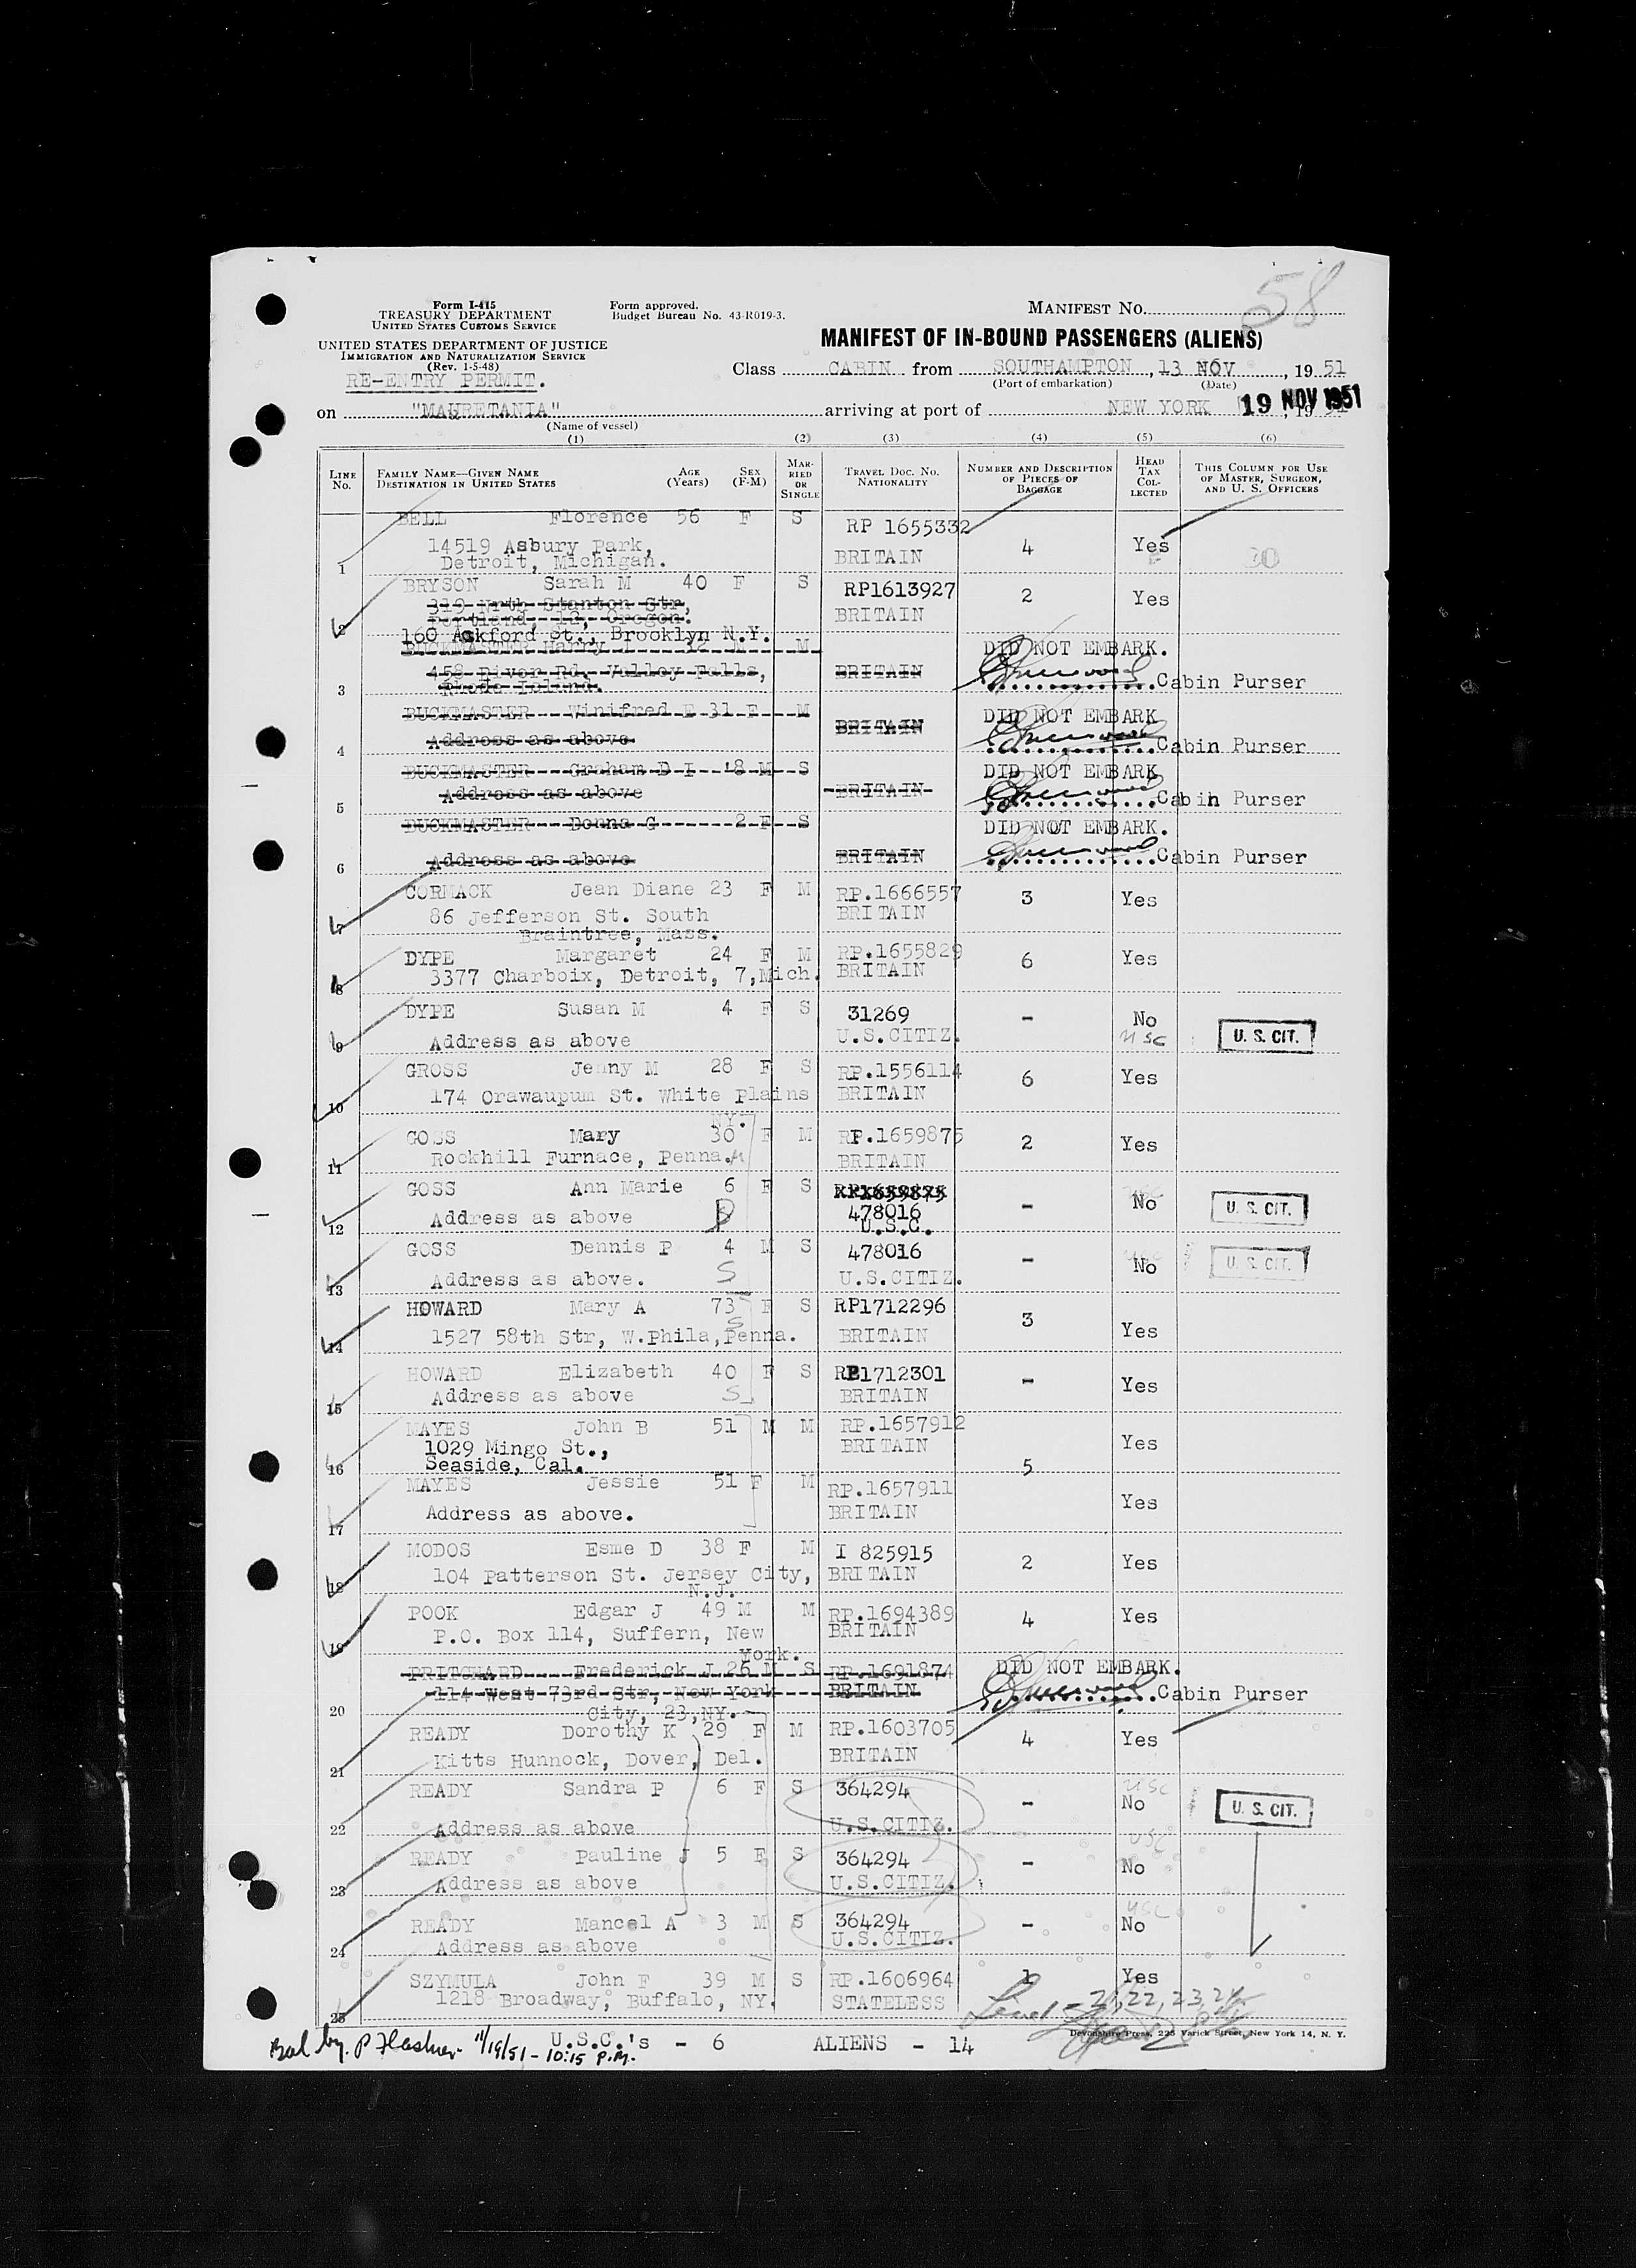 58
Form I-415
TREASURY DEPARTMENT
UNITED STATES CUSTOMS SERVICE
UNITED STATES DEPARTMENT OF JUSTICE
IMMIGRATION AND NATURALIZATION SERVICE
(Rev. 1-5-48)
RE-ENTRY PERMIT.
Form approved.
Budget Bureau No. 43-R019-3.
MANIFEST NO.
MANIFEST OF IN-BOUND PASSENGERS (ALIENS)
Class CABIN from SOUTHAMPTON, 13 NOV, 19 51
(Port of embarkation) (Date)
on "MAURETANIA" arriving at port of NEW YORK 19 NOV 1951
(Name of vessel)
(1) (2) (3) (4) (5) (6)
LINE NO.
FAMILY NAME—GIVEN NAME
DESTINATION IN UNITED STATES
AGE (Years)
SEX (F-M)
MARRIED OR SINGLE
TRAVEL DOC. NO.
NATIONALITY
NUMBER AND DESCRIPTION OF PIECES OF BAGGAGE
HEAD TAX COLLECTED
THIS COLUMN FOR USE OF MASTER, SURGEON, AND U. S. OFFICERS
BELL Florence 56 F S RP 1655332
14519 Asbury Park, 4 Yes 30
1 Detroit, Michigan. BRITAIN
BRYSON Sarah M 40 F S RP1613927 2 Yes
319 Nrth Stanton Str, BRITAIN
2 Portland, 12, Oregon.
160 Ackford St., Brooklyn N.Y.
BUCKMASTER Harry I 32 M M DID NOT EMBARK.
458 River Rd. Valley Falls, BRITAIN
3 Rhode Island. Cabin Purser
BUCKMASTER Winifred E 31 F M BRITAIN DID NOT EMBARK
4 Address as above Cabin Purser
BUCKMASTER Graham D I 8 M S DID NOT EMBARK
5 Address as above BRITAIN Cabin Purser
BUCKMASTER Donna G 2 F S DID NOT EMBARK.
6 Address as above BRITAIN Cabin Purser
CORMACK Jean Diane 23 F M RP.1666557 3 Yes
86 Jefferson St. South BRITAIN
7 Braintree, Mass.
DYPE Margaret 24 F M RP.1655829 6 Yes
8 3377 Charboix, Detroit, 7, Mich. BRITAIN
DYPE Susan M 4 F S 31269 - No
9 Address as above U.S.CITIZ. USC U. S. CIT.
GROSS Jenny M 28 F S RP.1556114 6 Yes
10 174 Orawaupum St. White Plains BRITAIN
NY.
GOSS Mary 30 F M RP.1659875 2 Yes
11 Rockhill Furnace, Penna. BRITAIN
GOSS Ann Marie 6 F S RP1659875 USC
12 Address as above 478016 - No U. S. CIT.
U.S.C.
GOSS Dennis P 4 M S 478016 USC
13 Address as above. S U.S.CITIZ. - No U. S. CIT.
HOWARD Mary A 73 F S RP1712296 3
14 1527 58th Str, W.Phila, Penna. S BRITAIN Yes
HOWARD Elizabeth 40 F S RP1712301 -
15 Address as above S BRITAIN Yes
MAYES John B 51 M M RP.1657912
1029 Mingo St., BRITAIN Yes
16 Seaside, Cal. 5
MAYES Jessie 51 F M RP.1657911
17 Address as above. BRITAIN Yes
MODOS Esme D 38 F M I 825915 2 Yes
18 104 Patterson St. Jersey City, BRITAIN
N.J.
POOK Edgar J 49 M M RP.1694389 4 Yes
19 P.O. Box 114, Suffern, New BRITAIN
York.
PRITCHARD Frederick J 26 M S RP.1691874 DID NOT EMBARK.
114 West 73rd Str, New York BRITAIN Cabin Purser
20 City, 23, NY.
READY Dorothy K 29 F M RP.1603705 4 Yes
21 Kitts Hunnock, Dover, Del. BRITAIN
READY Sandra P 6 F S 364294 - USC No U. S. CIT.
22 Address as above U.S.CITIZ.
READY Pauline J 5 F S 364294 - USC No
23 Address as above U.S.CITIZ.
READY Mancel A 3 M S 364294 - USC No
24 Address as above U.S.CITIZ.
SZYMULA John F 39 M S RP.1606964 1 Yes
25 1218 Broadway, Buffalo, NY. STATELESS
Lines - 21, 22, 23, 24
Devonshire Press, 225 Varick Street, New York 14, N. Y.
Bal by. P Flashner 11/19/51 - 10:15 P.M.
U.S.C.'s - 6 ALIENS - 14